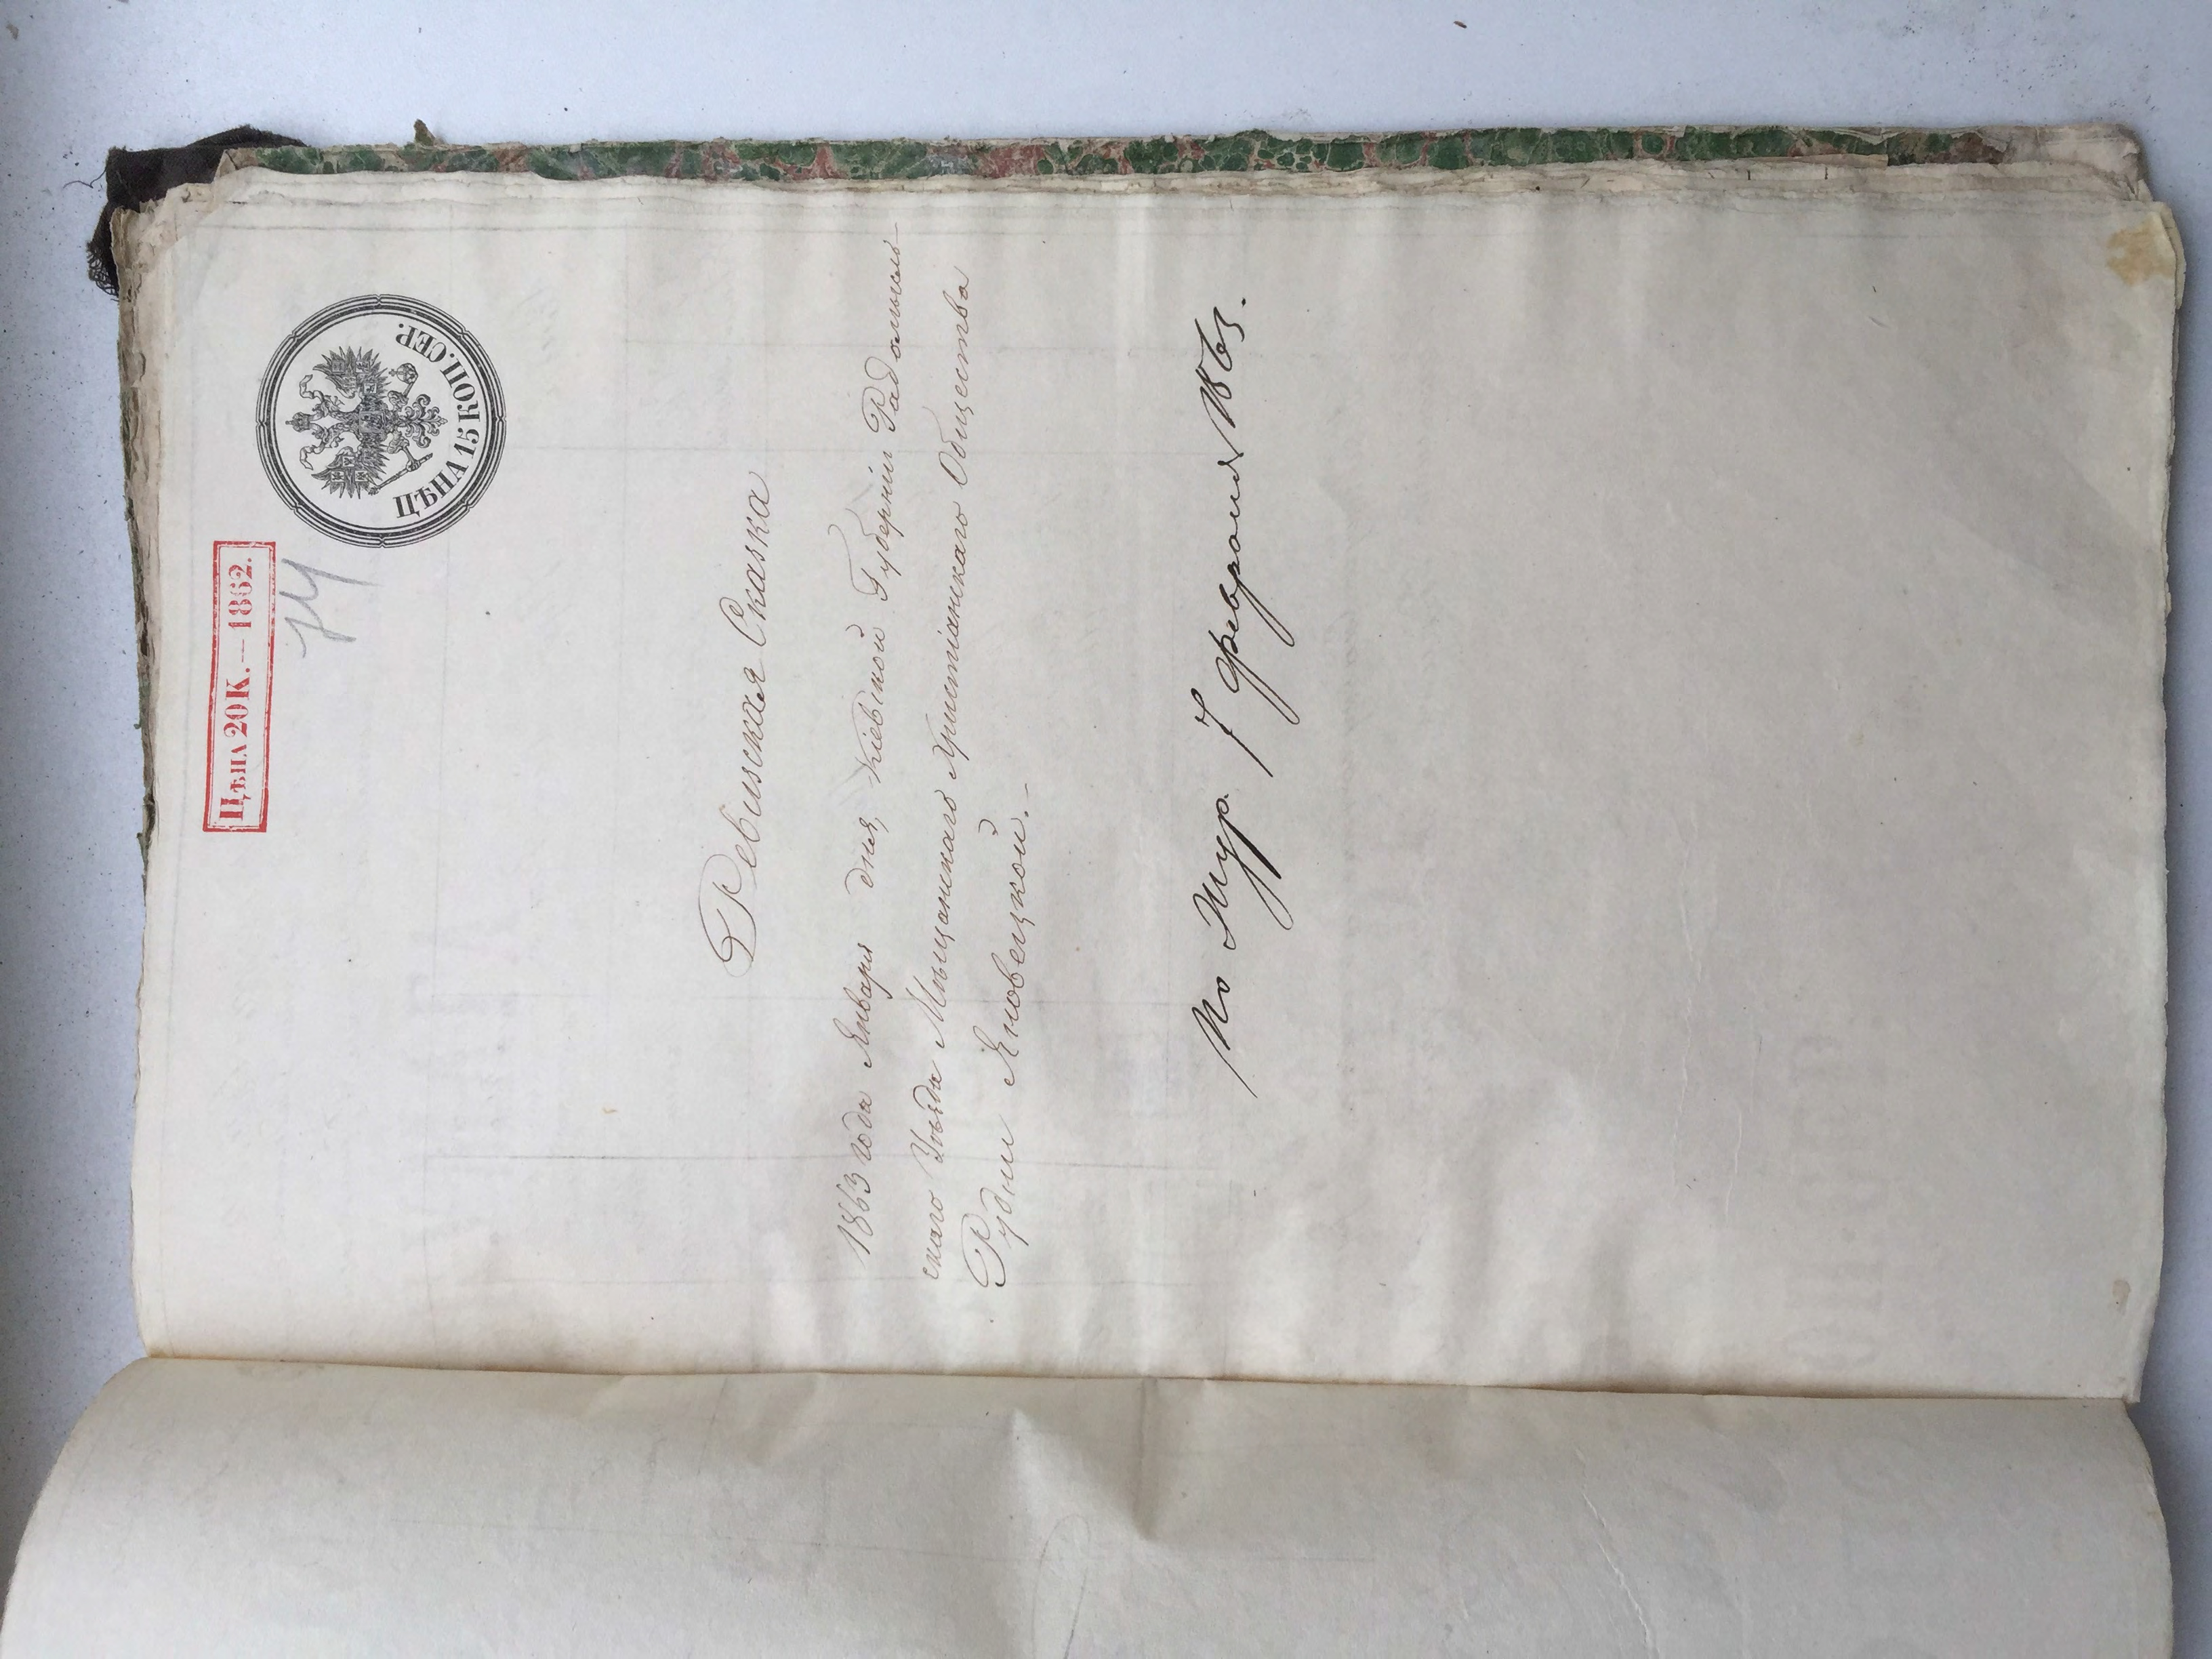 Цѣна 20 К. — 1862.
ЦѢНА 15 КОП. СЕР.
Ревизская Сказка
1863 года Января дня, Кіевской Губерніи Радомысль-
скаго Уѣзда Мѣщанскаго Христіянскаго Общества
Рудни Яновецкой. –
По Жур. 7 февраля 1863.